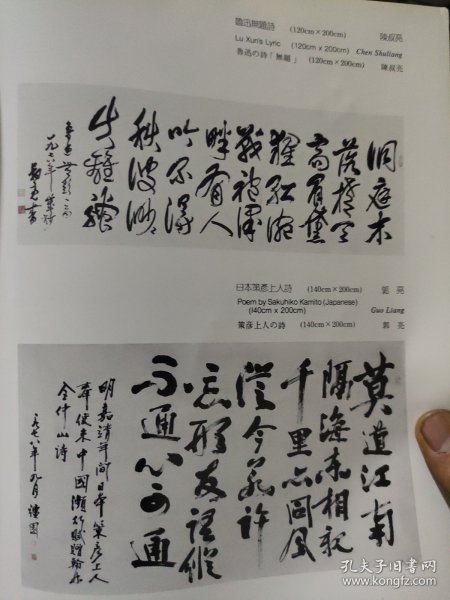 魯迅無題詩 (120cm×200cm) 陳叔亮
Lu Xun's Lyric (120cm x 200cm) Chen Shuliang
魯迅の詩「無題」 (120cm×200cm) 陳叔亮
洞庭木
落楚天
高眉黛
猩红涴
戰袍澤
畔有人
吟不得
秋波渺
失離騷
日本策彥上人詩 (140cm×200cm) 郭亮
Poem by Sakuhiko Kamito (Japanese)
(140cm x 200cm) Guo Liang
策彦上人の詩 (140cm×200cm) 郭亮
莫道江南
隔海未相親
千里亦同風
從今若許
忘形友語縱
不通心可通
明嘉靖年間日本策彥上人
奉使來中國
一九七八年九月
孔夫子旧书网